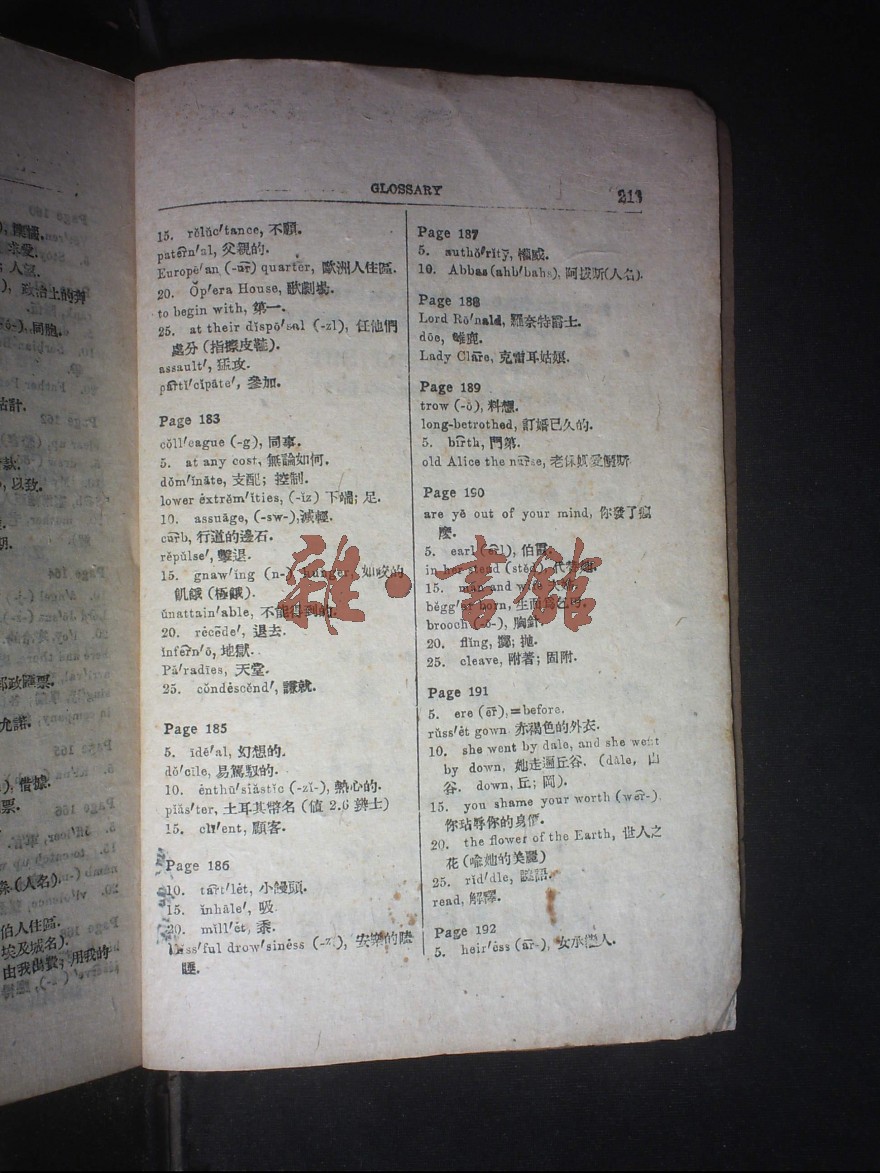 GLOSSARY
213
15. rĕlŭc′tance, 不願.
patẽrn′al, 父親的.
Europe′an (-ur) quarter, 歐洲人住區.
20. Ŏp′era House, 歌劇場.
to begin with, 第一.
25. at their dĭspō′sal (-zl), 任他們
處分 (指擦皮鞋).
assault′, 猛攻.
pärtĭ′cĭpāte′, 參加.
Page 183
cŏll′eague (-g), 同事.
5. at any cost, 無論如何.
dŏm′ĭnāte, 支配; 控制.
lower ĕxtrĕm′ities, (-ĭz) 下端; 足.
10. assuāge, (-sw-), 減輕.
cûrb, 行道的邊石.
rĕpŭlse′, 擊退.
15. gnaw′ing (n-) hunger, 如咬的
飢餓 (極餓).
ŭnattain′able, 不能得到的.
20. rēcēde′, 退去.
infẽrn′ō, 地獄.
Pă′radīes, 天堂.
25. cŏndĕscĕnd′, 謙就.
Page 185
5. īdē′al, 幻想的.
dō′cile, 易駕馭的.
10. ĕnthū′sĭăstĭc (-zĭ-), 熱心的.
piăs′ter, 土耳其幣名 (值 2.6 辨士)
15. clī′ent, 顧客.
Page 186
10. tärt′lĕt, 小饅頭.
15. ĭnhāle′, 吸.
20. mĭll′ĕt, 黍.
bliss′ful drow′sinĕss (-z), 安樂的瞌
睡.
Page 187
5. authŏ′rĭtў, 權威.
10. Abbas (ahb′bahs), 阿拔斯(人名).
Page 188
Lord Rŏ′nald, 羅奈特爵士.
dōe, 雌鹿.
Lady Clāre, 克雷耳姑娘.
Page 189
trow (-ō), 料想.
long-betrothed, 訂婚已久的.
5. bĩrth, 門第.
old Alice the nûrse, 老保姆愛麗斯
Page 190
are yē out of your mind, 你發了瘋
麼.
5. earl (ẽrl), 伯爵.
in her stead (stĕd), 代替她.
15. man and wife
bĕgg′ar born, 生而爲乞丐.
brooch (-ō-), 胸針.
20. flĭng, 擲; 拋.
25. cleave, 附著; 固附.
Page 191
5. ere (ēr), =before.
rŭss′ĕt gown 赤褐色的外衣.
10. she went by dale, and she went
by down, 她走遍丘谷. (dāle, 山
谷. down, 丘; 岡).
15. you shame your worth (wẽr-)
你玷辱你的身價.
20. the flower of the Earth, 世人之
花 (喻她的美麗)
25. rĭd′dle, 謎語.
read, 解釋.
Page 192
5. heir′ĕss (ār-), 女承繼人.